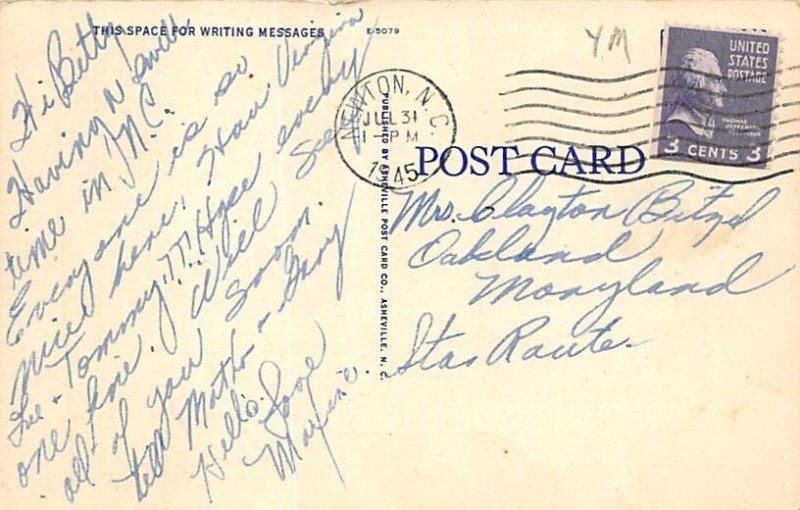 THIS SPACE FOR WRITING MESSAGES
E-5079
Hi Betty
Having a swell
time in N.C.
Everyone is so
nice here. How Virginia
Lee + Tommy!!! Hope
one fine. Will See
all of you Soon.
tell Mother + Gary
Hello. Love
Maxine.
PUBLISHED BY ASHEVILLE POST CARD CO., ASHEVILLE, N. C.
NEWTON, N.C.
JUL 31
1-PM
1945
YM
UNITED
STATES
POSTAGE
THOMAS
JEFFERSON
3 CENTS 3
POST CARD
Mrs. Clayton Bitzel
Oakland
Maryland
Star Route